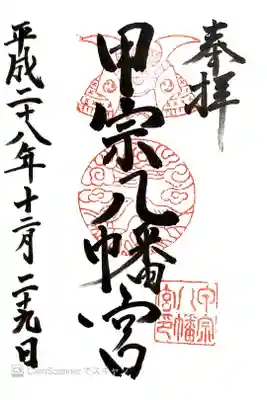 奉拝
甲宗八幡宮
平成二十八年十二月二十九日
甲宗
八幡
宮印
CamScannerでスキャン